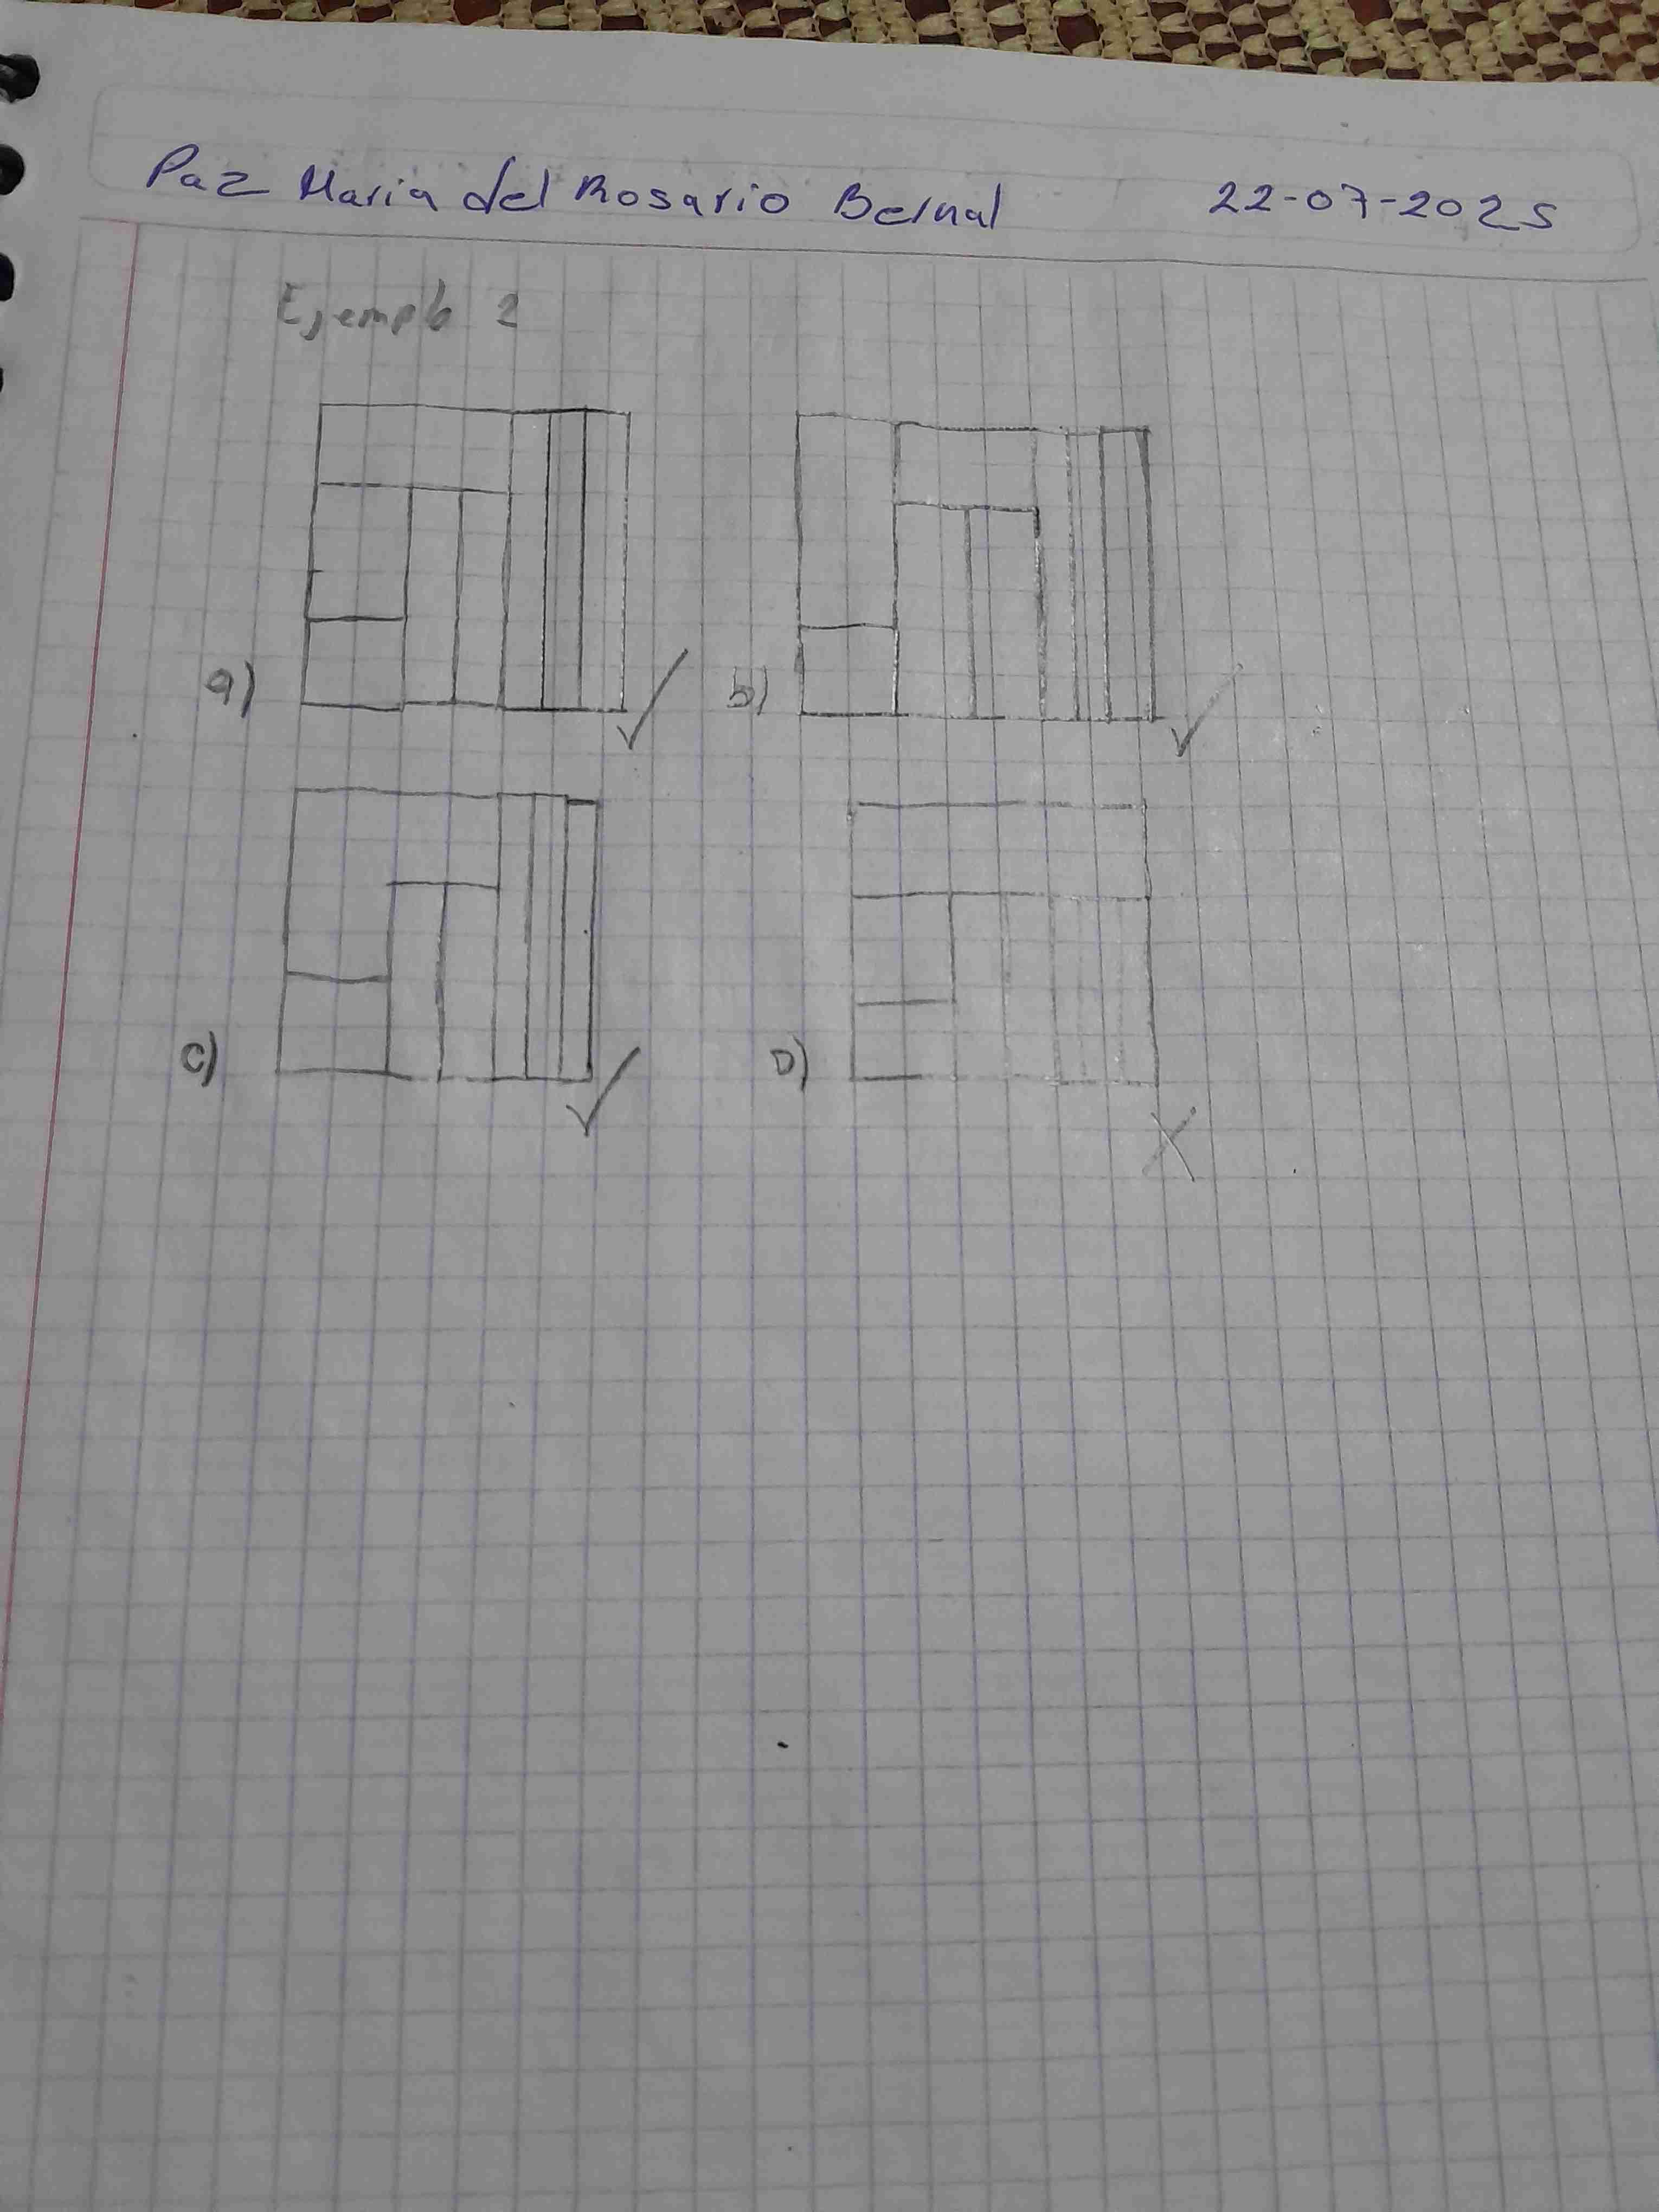 Paz Maria del Rosario Bernal 22-07-2025
Ejemplo 2
a) b)
c) D)